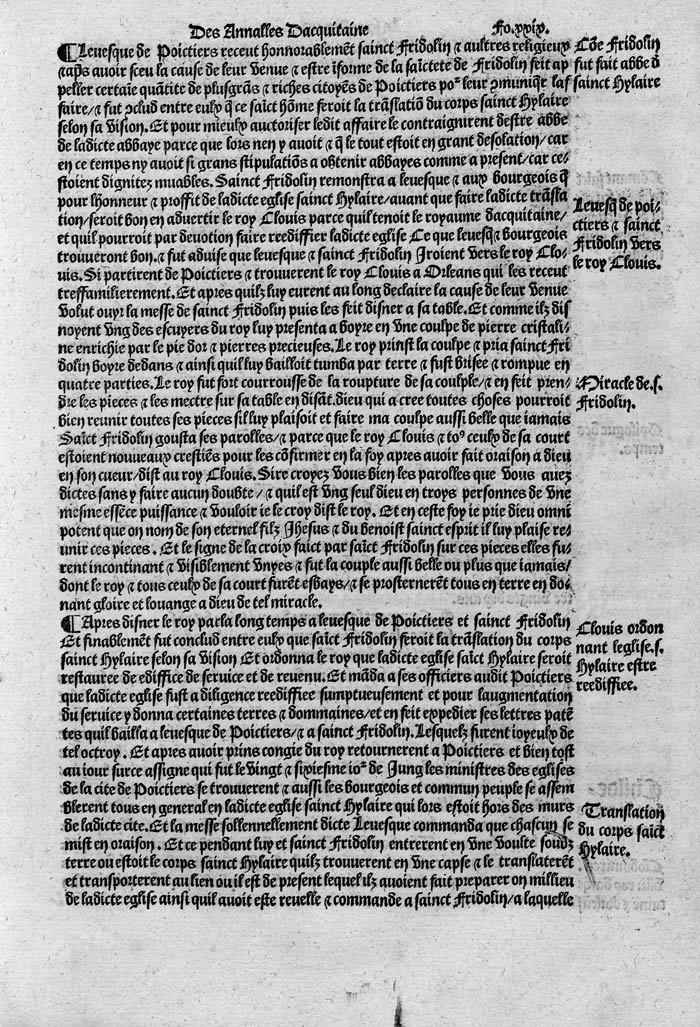 Des Annalles Dacquitaine
Fo.xxix.
¶Leuesque de Poictiers receut honnorablemēt sainct Fridolin ⁊ aultres religieux
⁊ aps̄ auoir sceu la cause de leur venue ⁊ estre īforme de la saīctete de Fridolin feit ap
peller certaīe quātite de plusgrās ⁊ riches citoyēs de Poictiers po² leur ꝯmuniqr̄ laf
faire/⁊ fut ꝯclud entre eulx q̄ ce saīct hōme feroit la trāslatiō du corps sainct Hylaire
selon sa vision. Et pour mieulx auctoriser ledit affaire le contraignirent destre abbe
de ladicte abbaye parce que lors nen y auoit ⁊ q̄ le tout estoit en grant desolation/car
en ce temps ny auoit si grans stipulatiōs a obtenir abbayes comme a present/car ce/
stoient dignitez muables. Sainct Fridolin remonstra a leuesque ⁊ aux bourgeois q̄
pour lhonneur ⁊ proffit de ladicte eglise sainct Hylaire/auant que faire ladicte trāsla
tion/seroit bon en aduertir le roy Clouis parce quil tenoit le royaume dacquitaine/
et quil pourroit par deuotion faire reediffier ladicte eglise Ce que leuesq̄ ⁊ bourgeois
trouuerent bon. ⁊ fut aduise que leuesque ⁊ sainct Fridolin Jroient vers le roy Clo/
uis. Si partirent de Poictiers ⁊ trouuerent le roy Clouis a Orleans qui les receut
treffamilierement. Et apres quilz luy eurent au long declaire la cause de leur venue
volut ouyr la messe de sainct Fridolin puis les feit disner a sa table. Et comme ilz dis
noyent vng des escuyers du roy luy presenta a boyre en vne coulpe de pierre cristali/
ne enrichie par le pie dor ⁊ pierres precieuses. Le roy prinst la coulpe ⁊ pria sainct Fri
dolin boyre dedans ⁊ ainsi quil luy bailloit tumba par terre ⁊ fust brisee ⁊ rompue en
quatre parties. Le roy fut fort courrousse de la roupture de sa coulple/⁊ en feit pren/
dre les pieces ⁊ les mectre sur sa table en disāt. dieu qui a cree toutes choses pourroit
bien reunir toutes ses pieces sil luy plaisoit et faire ma coulpe aussi belle que iamais
Saīct Fridolin gousta ses parolles/⁊ parce que le roy Clouis ⁊ to⁹ ceulx de sa court
estoient nouueaux crestiēs pour les cōfirmer en la foy apres auoir fait oraison a dieu
en son cueur/dist au roy Clouis. Sire croyez vous bien les parolles que vous auez
dictes sans y faire aucun doubte/⁊ quil est vng seul dieu en troys personnes de vne
mesme essēce puissance ⁊ vouloir ie le croy dist le roy. Et en ceste foy ie prie dieu omni
potent que on nom de son eternel filz Jhesus ⁊ du benoist sainct esprit il luy plaise re/
unir ces pieces. Et le signe de la croix faict par saīct Fridolin sur ces pieces elles fu/
rent incontinant ⁊ visiblement vnyes ⁊ fut la couple aussi belle ou plus que iamais/
dont le roy ⁊ tous ceulx de sa court furēt esbays/⁊ se prosternerēt tous en terre en do/
nant gloire et louange a dieu de tel miracle.
¶Apres disner le roy parla long temps a leuesque de Poictiers et sainct Fridolin
Et finablemēt fut conclud entre eulx que saīct Fridolin feroit la trāslation du corps
sainct Hylaire selon sa vision Et ordonna le roy que ladicte eglise saīct Hylaire seroit
restauree de ediffice de seruice et de reuenu. Et māda a ses officiers audit Poictiers
que ladicte eglise fust a diligence reediffiee sumptueusement et pour laugmentation
du seruice y donna certaines terres ⁊ dommaines/et en feit expedier ses lettres patē
tes quil bailla a leuesque de Poictiers/⁊ a sainct Fridolin. Lesquelz furent ioyeulx de
tel octroy. Et apres auoir prins congie du roy retournerent a Poictiers et bien tost
au iour surce assigne qui fut le vingt ⁊ sixiesme io² de Jung les ministres des eglises
de la cite de Poictiers se trouuerent ⁊ aussi les bourgeois et commun peuple se assem
blerent tous en general en ladicte eglise sainct Hylaire qui lors estoit hors des murs
de ladicte cite. Et la messe sollennellement dicte Leuesque commanda que chascun se
mist en oraison. Et ce pendant luy et sainct Fridolin entrerent en vne voulte soudz
terre ou estoit le corps sainct Hylaire quilz trouuerent en vne capse ⁊ le translaterēt
et transporterent au lien ou il est de present lequel ilz auoient fait preparer on millieu
de ladicte eglise ainsi quil auoit este reuelle ⁊ commande a sainct Fridolin/a laquelle
Cōe Fridolin
fut fait abbe d̄
sainct Hylaire
Leuesq̄ de poi/
ctiers ⁊ sainct
Fridolin vers
le roy Clouis.
Miracle de.s.
Fridolin.
Clouis ordon
nant leglise.s.
Hylaire estre
reediffiee.
Translation
du corps saīct
Hylaire.